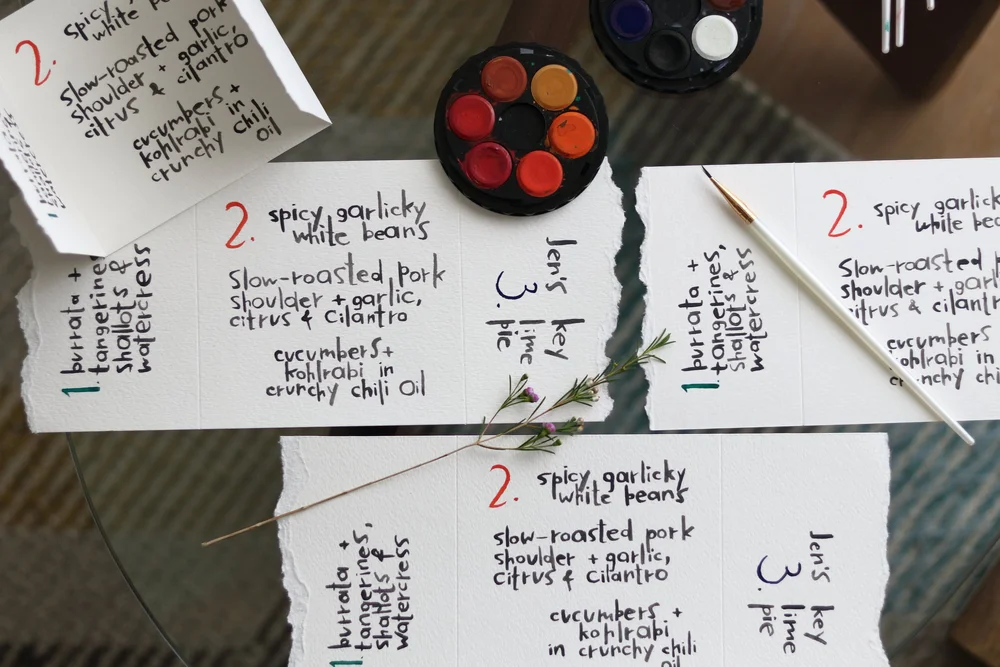 2. spicy
white p
Slow-roasted pork
shoulder + garlic,
citrus & cilantro
cucumbers +
kohlrabi in
crunchy chili
oil
1. burrata +
tangerine
shallots &
watercress
2. spicy garlicky
white beans
Slow-roasted pork
shoulder + garlic,
citrus & cilantro
cucumbers +
kohlrabi in
crunchy chili oil
3. Jen's key
lime
pie
1. burrata +
tangerines,
shallots &
watercress
2. spicy garlick
white bea
Slow-roasted p
shoulder + garli
citrus & cilantr
cucumbers +
kohlrabi in
crunchy chi
1. burrata +
tangerines,
shallots &
watercress
2. spicy garlicky
white beans
slow-roasted pork
shoulder + garlic,
citrus & cilantro
cucumbers +
kohlrabi
in crunchy chili
oil
3. Jen's key
lime
pie